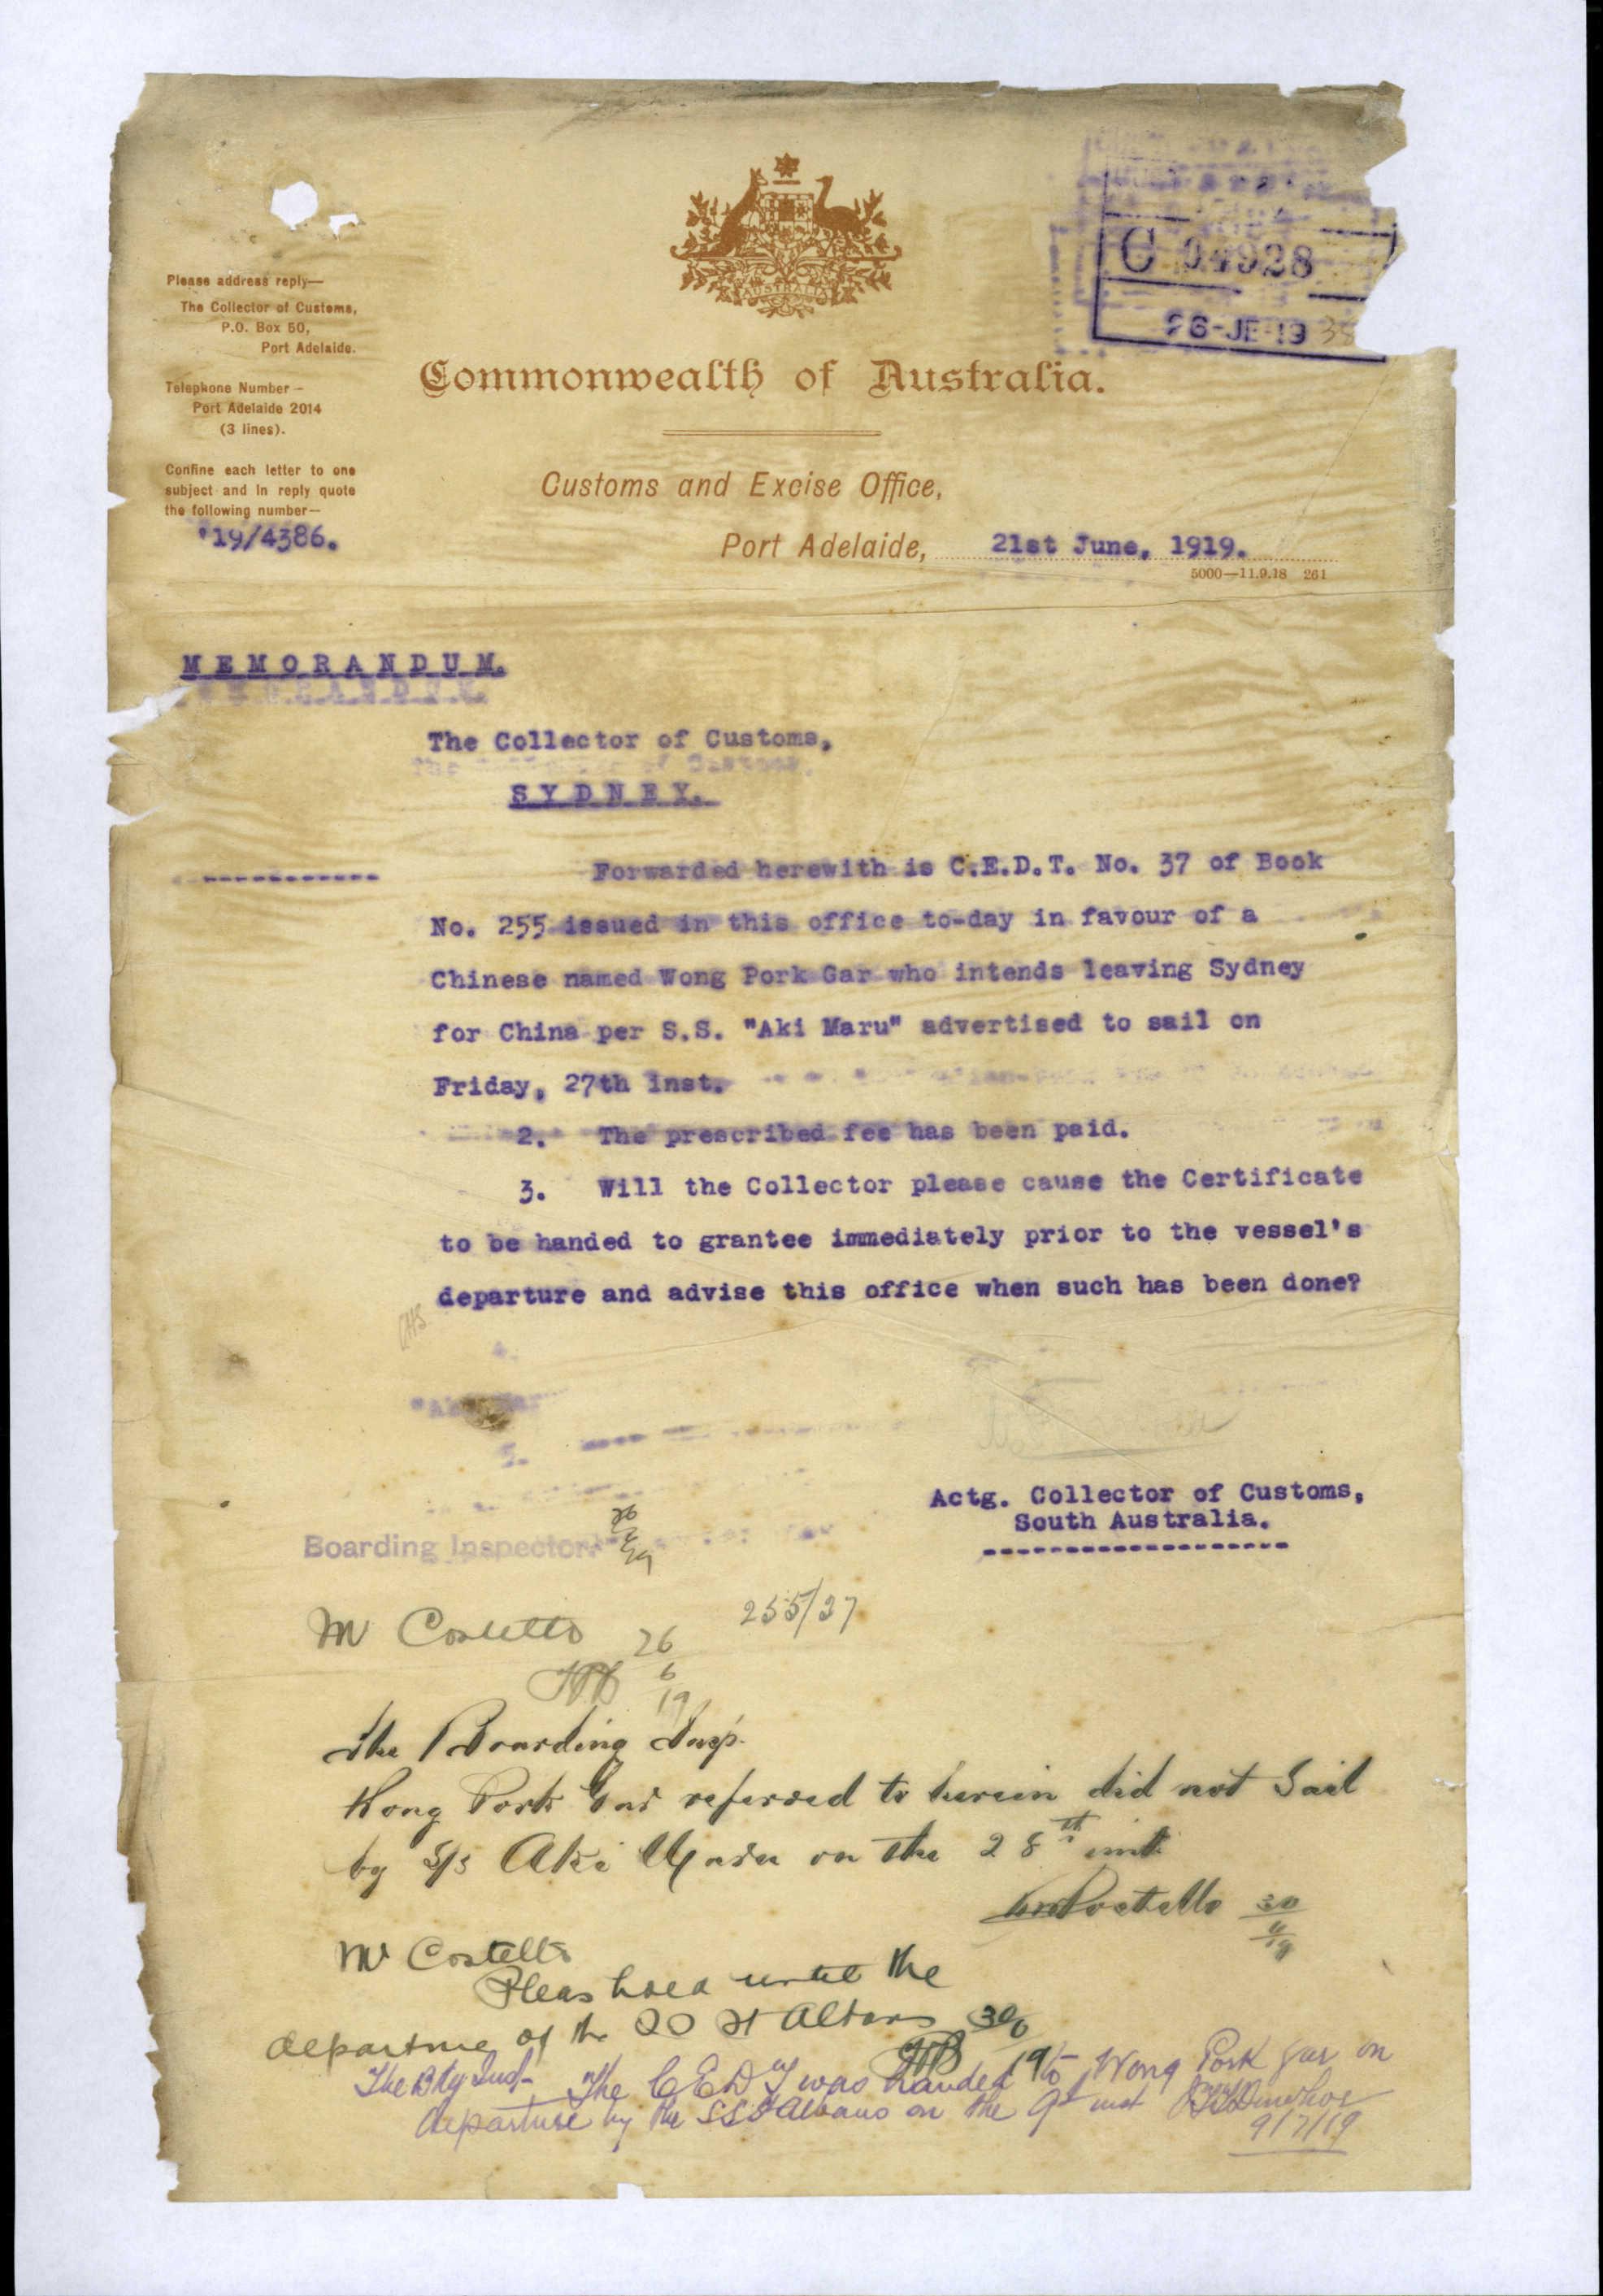 Please address reply—
The Collector of Customs,
P.O. Box 50,
Port Adelaide.
Telephone Number –
Port Adelaide 2014
(3 lines).
Confine each letter to one
subject and in reply quote
the following number—
'19/4386.
AUSTRALIA
C 04928
26-JE-19
Commonwealth of Australia.
Customs and Excise Office,
Port Adelaide, 21st June, 1919.
5000—11.9.18 261
MEMORANDUM.
The Collector of Customs,
SYDNEY.
Forwarded herewith is C.E.D.T. No. 37 of Book
No. 255 issued in this office to-day in favour of a
Chinese named Wong Pork Gar who intends leaving Sydney
for China per S.S. "Aki Maru" advertised to sail on
Friday, 27th inst.
2. The prescribed fee has been paid.
3. Will the Collector please cause the Certificate
to be handed to grantee immediately prior to the vessel's
departure and advise this office when such has been done?
Actg. Collector of Customs,
South Australia.
Boarding Inspector.
26/6/19
255/37
Mr Costello
26
6
19
The Boarding Insp.
Wong Pork Gar referred to herein did not Sail
by S/S Aki Maru on the 28th inst.
Costello 30/6/19
Mr Costello
Pleas hold until the
departure of the SS St Albans 30/6
19
The Bdg Insp. The CEDT was handed to Wong Pork Gar on
departure by the SS St Albans on the 9th inst
9/7/19